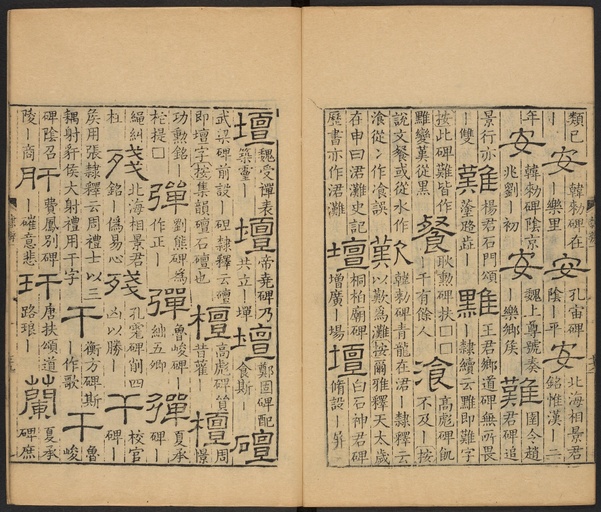 類已 安 韓勑碑在－樂里 安 孔宙碑陰－平 安 北海相景君銘惟漢－二
年 安 韓勑碑陰京兆劉－初 安 魏上尊號奏－樂鄉矦 難 圉令趙君碑追
景行亦－雙 難 楊君石門頌 路－ 難 王君鄉道碑無所畏－隸續云 即難字
按此碑難皆作 雖變 從黑 餐 耿勳碑扶口口－千有餘人 飡 高彪碑飢不及－按
說文餐或從水作飡從冫作飡誤 歎 韓勑碑青龍在君－隸釋云以歎為灘按爾雅釋天太歲
在申曰涒灘史記歷書亦作涒灘 壇 桐柏廟碑增廣－場 壇 白石神君碑脩設－
壇 魏受禪表築靈－ 壇 帝堯碑乃共立－墠 壇 鄭固碑配食斯－ 礶
武梁碑前設－墠隸釋云礶即壇字按集韻壇石壇也 檀 高彪碑 周 昔 檀 憬
功勳銘－ 提口 彈 劉熊碑為作正－ 彈 魯峻碑－ 五卿 彈 夏承碑－
繩糾枉 戔 北海相景君銘－偽易心 殘 孔 碑削四凶以勝－ 干 校官碑－
矦用張隸釋云周禮士以三耦射豻侯大射禮用干字 干 衡方碑斯－作歌 干 魯峻
碑陰召陵－商 肝 費鳳別碑－摧意悲 玕 唐扶頌道路琅－ 蘭 夏承碑庶